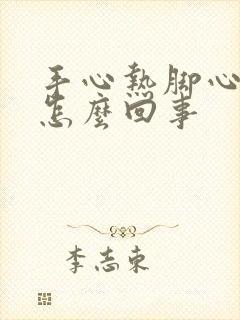 手心熱脚心
怎麼回事
李志東